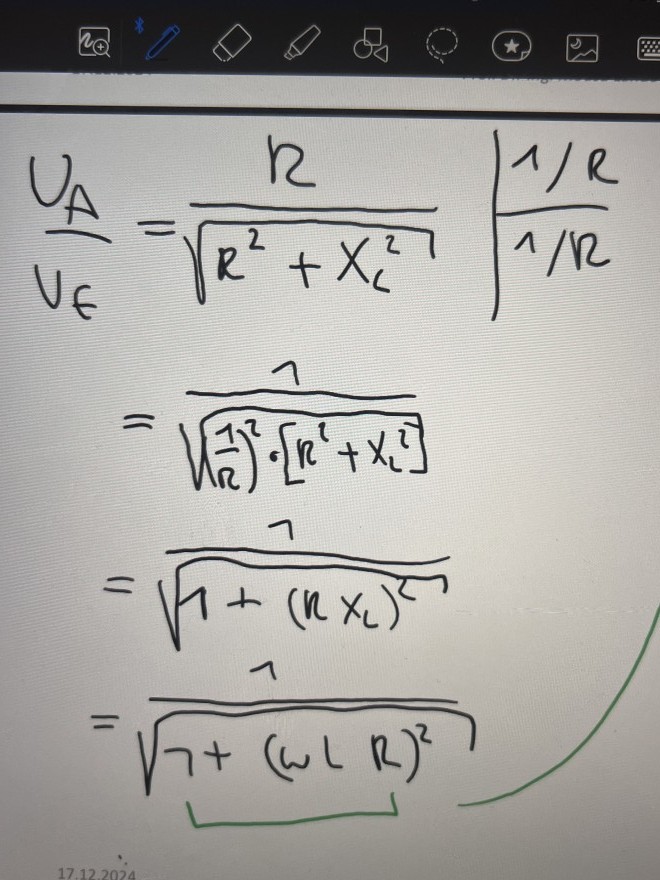 U_A / U_E = R / √(R² + X_L²) | 1/R / 1/R
= 1 / √((1/R)² · [R² + X_L²])
= 1 / √(1 + (R X_L)²)
= 1 / √(1 + (ω L R)²)
17.12.2024